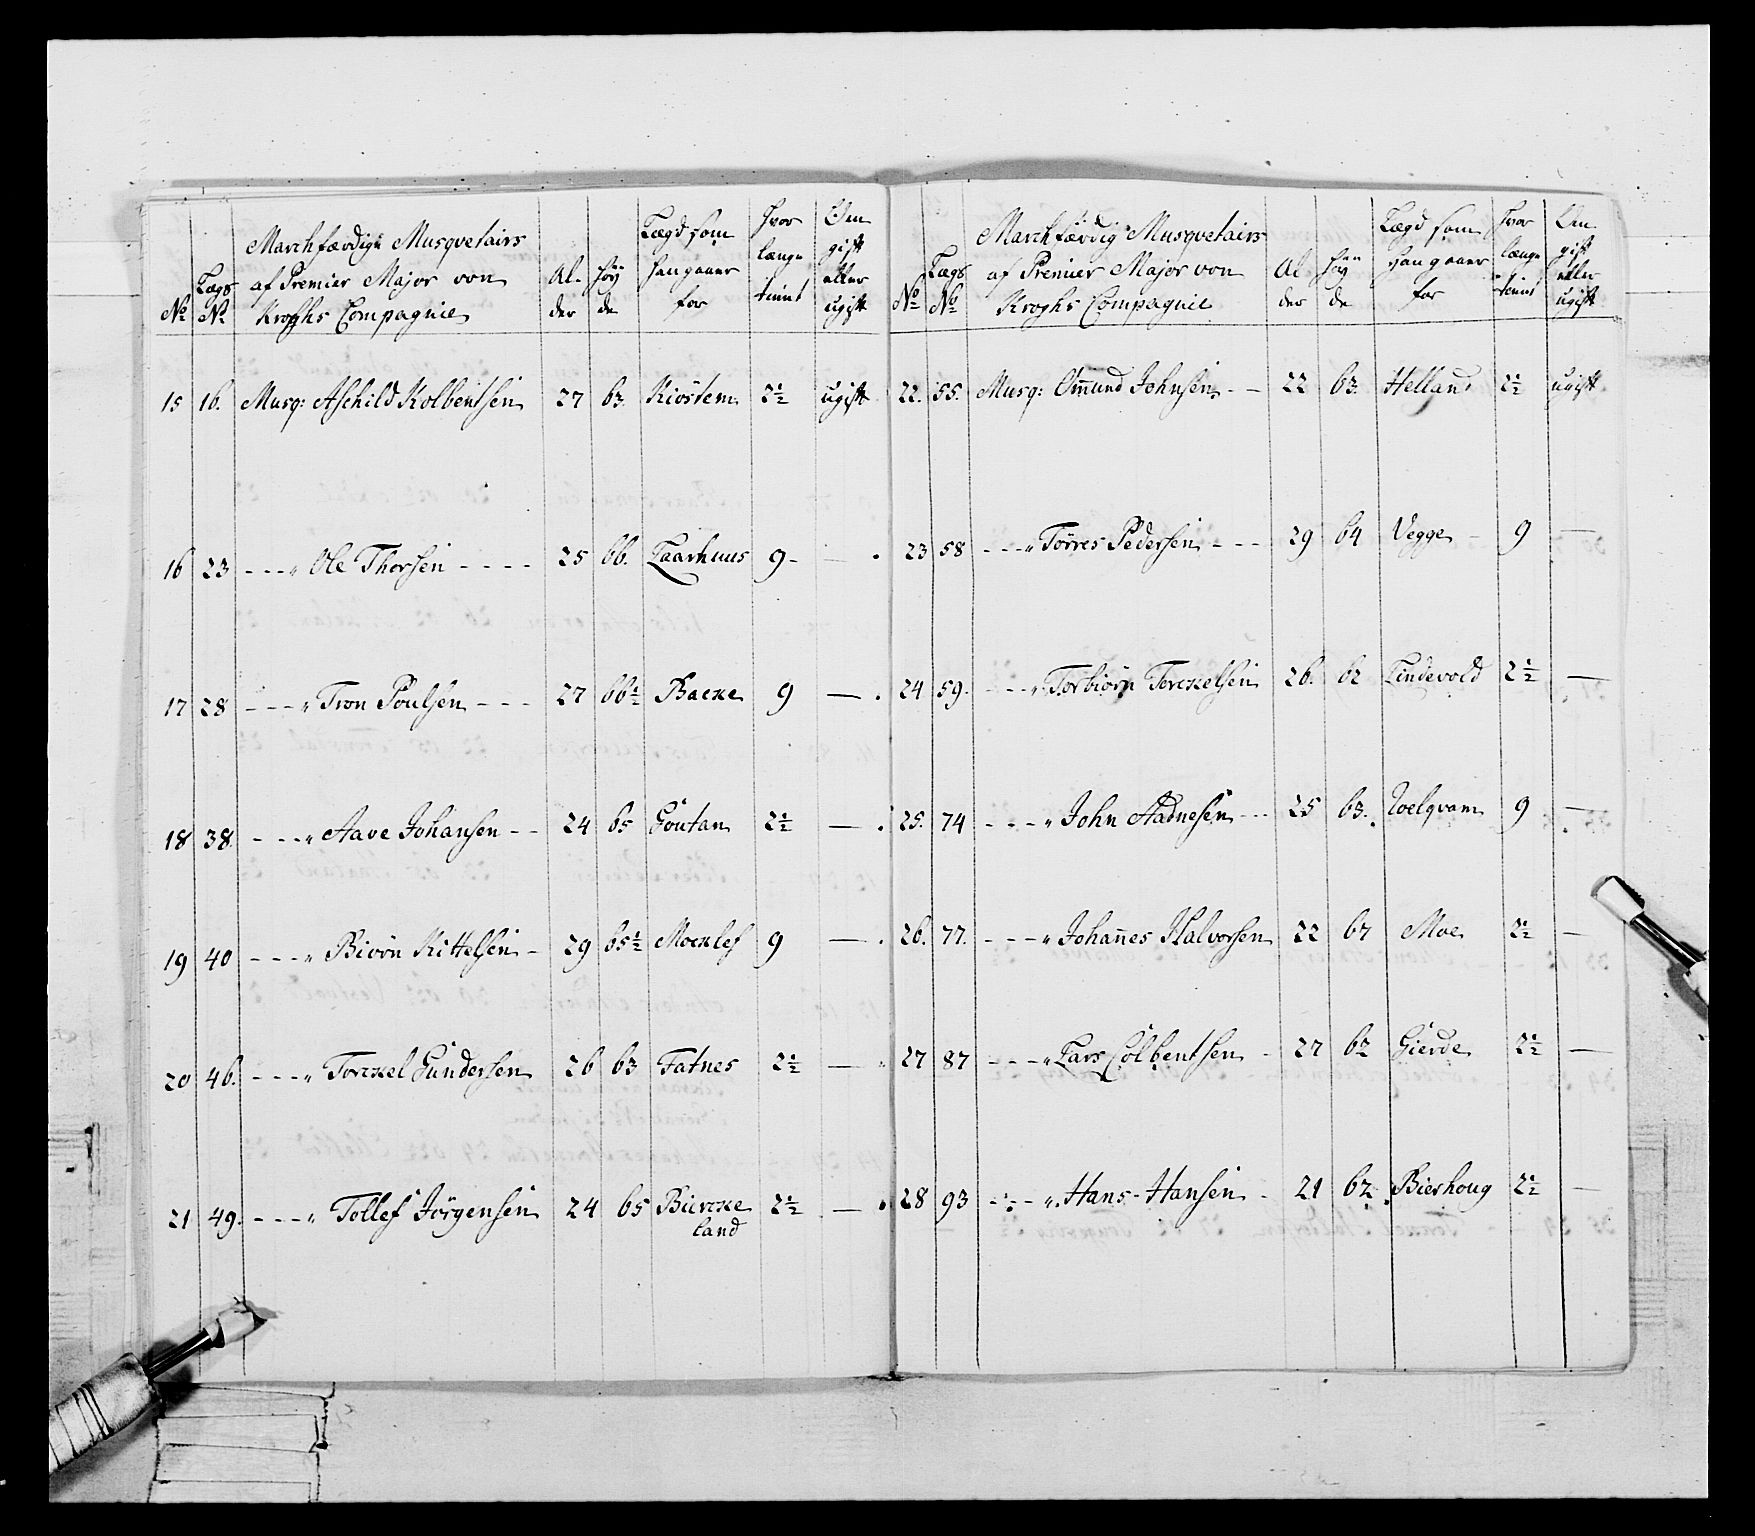 Marchfærdige Musquetairs
af Premier Major von
Kroghs Compagnie
No
Lægs No
Al-der
Høy de
Lægd som han gaaer for
Hvor længe tient
Om gift eller ugift
15 16. Musq: Aschild Kolbentsen 27 63. Kiöstem 2½ ugift
16 23 - - - " Ole Thorsen - - - - 25 66. Taarhuus 9 - —
17 28 - - - " Tron Poulsen - - - 27 66½ Backe 9 —
18 38 - - - " Aave Johansen - - 24 65 Goutan 2½ —
19 40 - - - " Bivön Kittelsen - 29 65½ Mocklef 9 —
20 46. - - - " Torckel Gundersen 26 63 Fatnes 2½ —
21 49. - - - " Tollef Jörgensen 24 65 Biercke 2½ —
land
Marchfærdig Musquetairs
af Premier Major von
Kroghs Compagnie
No
Lægs No
Al der
Høy de
Lægd som han gaaer for
Hvor længe tient
Om gift eller ugift
22. 55. Musq: Omund Johnsen - - 22 63. Helland 2½ ugift
23 58 - - - " Törres Pedersen - - - 29 64 Vegge - 9 —
24 59. - - - " Torbiörn Torckelsen 26. 62 Lindevold 2½ —
25. 74 - - - " John Aadnesen - - - 25 63. Welqvam 9 —
26. 77. - - - " Johanes Halvorsen 22 67 Moe 2½ —
27 87 - - - " Lars Colbentsen - 27 62 Gierde 2½ —
28 93 - - - " Hans Hansen - 21 62 Bierhoug 2½ —